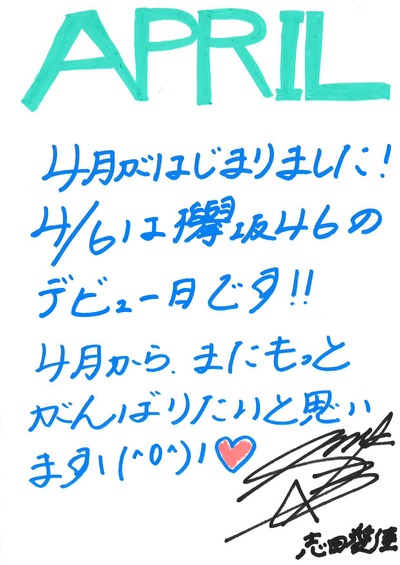 APRIL
4月がはじまりました！
4/6は欅坂46の
デビュー日です!!
4月から、またもっと
がんばりたいと思い
ます！(^o^)！♥
志田愛佳